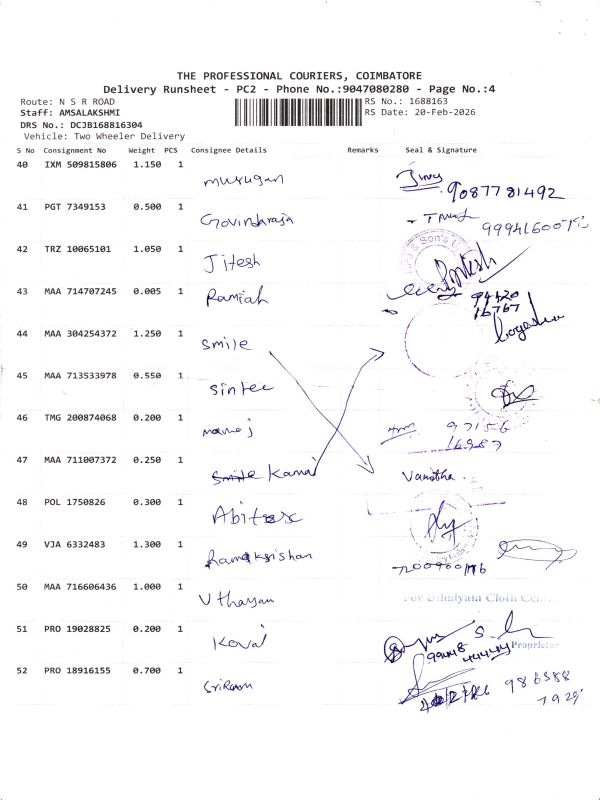 THE PROFESSIONAL COURIERS, COIMBATORE
Delivery Runsheet - PC2 - Phone No.:9047080280 - Page No.:4
Route: N S R ROAD
RS No.: 1688163
Staff: AMSALAKSHMI
RS Date: 20-Feb-2026
DRS No.: DCJB168816304
Vehicle: Two Wheeler Delivery
S No Consignment No Weight PCS Consignee Details Remarks Seal & Signature
40 IXM 509815806 1.150 1 murugan
9087781492
41 PGT 7349153 0.500 1 Govindaraja
42 TRZ 10065101 1.050 1 Jitesh
& Son's
43 MAA 714707245 0.005 1 Ramiah
94420
16767
44 MAA 304254372 1.250 1 Smile
45 MAA 713533978 0.550 1 Sintec
46 TMG 200874068 0.200 1 manoj
97156
16987
47 MAA 711007372 0.250 1 Smile Kamal Vanitha.
48 POL 1750826 0.300 1
49 VJA 6332483 1.300 1 Ramakrishan
50 MAA 716606436 1.000 1 Uthayam
For Udhaiyam Cloth Centre
51 PRO 19028825 0.200 1 Koval
Proprietor
99448
44444
52 PRO 18916155 0.700 1 SriRam
986588